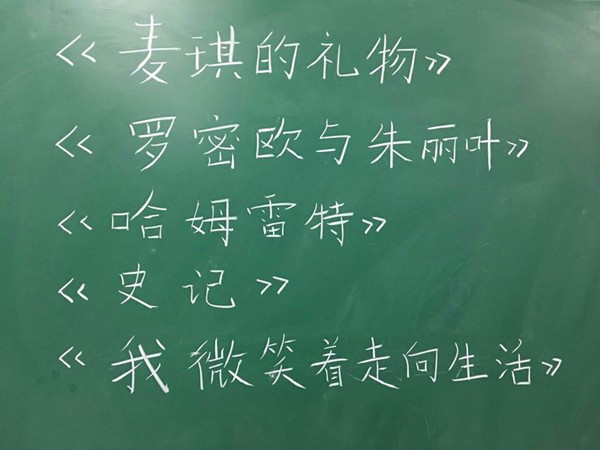 《麦琪的礼物》
《罗密欧与朱丽叶》
《哈姆雷特》
《史记》
《我微笑着走向生活》